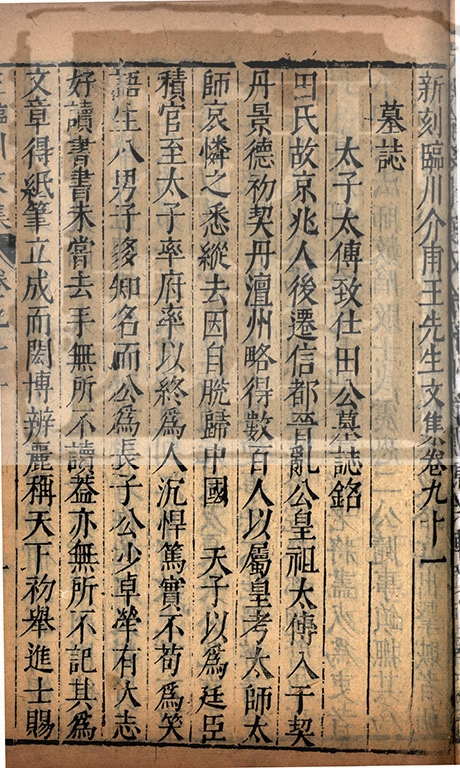 新刻臨川介甫王先生文集卷九十一
墓誌
太子太傅致仕田公墓誌銘
田氏故京兆人後遷信都晉亂公皇祖太傅入于契
丹景德初契丹澶州略得數百人以屬皇考太師太
師哀憐之悉縱去因自脫歸中國　天子以爲廷臣
積官至太子率府率以終爲人沉悍篤實不苟爲笑
語生八男子多知名而公爲長子公少卓犖有大志
好讀書書未嘗去手無所不讀葢亦無所不記其爲
文章得紙筆立成而閎博辨麗稱天下初舉進士賜